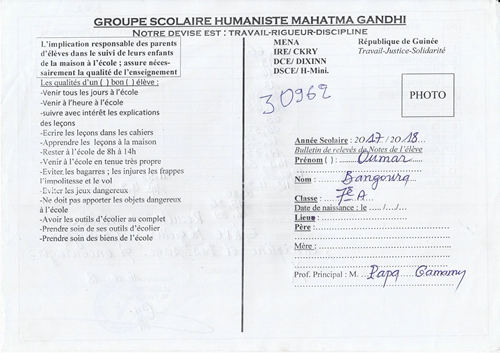 GROUPE SCOLAIRE HUMANISTE MAHATMA GANDHI
NOTRE DEVISE EST : TRAVAIL-RIGUEUR-DISCIPLINE
L'implication responsable des parents
d'élèves dans le suivi de leurs enfants
de la maison à l'école ; assure néces-
sairement la qualité de l'enseignement
Les qualités d'un ( ) bon ( ) élève :
-Venir tous les jours à l'école
-Venir à l'heure à l'école
-suivre avec intérêt les explications
des leçons
-Ecrire les leçons dans les cahiers
-Apprendre les leçons à la maison
-Rester à l'école de 8h à 14h
-Venir à l'école en tenue très propre
-Eviter les bagarres ; les injures les frappes
l'impolitesse et le vol
-Eviter les jeux dangereux
-Ne doit pas apporter les objets dangereux
à l'école
-Avoir les outils d'écolier au complet
-Prendre soin de ses outils d'écolier
-Prendre soin des biens de l'école
MENA
IRE/ CKRY
DCE/ DIXINN
DSCE/ H-Mini.
République de Guinée
Travail-Justice-Solidarité
30962
PHOTO
Année Scolaire : 2017/2018
Bulletin de relevés du Notes de l'élève
Prénom ( ) : Oumar
Nom : Bangoura
Classe : 7è A
Date de naissance : le ..... /..../....
Lieu:
Père :
Mère :
Prof. Principal : M. Papa Camamy